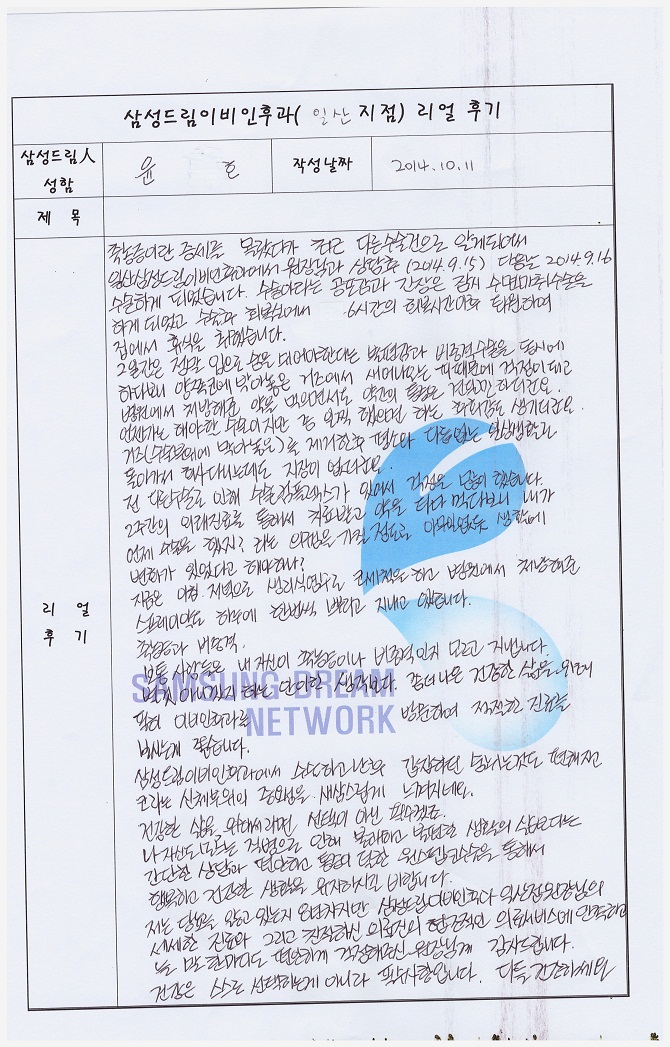 삼성드림이비인후과( 일산 지점) 리얼 후기
삼성드림人 성함
윤 호
작성날짜
2014.10.11
제 목
리 얼 후 기
축농증이란 증세를 몰랐다가 최근 다른수술건으로 알게되어서
일산삼성드림이비인후과에서 원장님과 상담후 (2014.9.15) 다음날 2014.9.16
수술하게 되었습니다. 수술이라는 공포감과 긴장은 잠시 수면마취수술을
하게 되었고 수술후 회복실에서 6시간의 회복시간이후 퇴원하여
집에서 휴식을 취했습니다.
2일간은 정말 입으로 숨을 내쉬어야한다는 불편감과 비중격수술을 동시에
하다보니 양쪽코에 막아놓은 거즈에서 새어나오는 피때문에 걱정이 되고
병원에서 처방해준 약을 먹으면서도 약간의 통증은 견딜만 하더군요.
언젠가는 해야할 수술이지만 좀 일찍 했으면 하는 후회감도 생기더군요.
거즈(수술부위에 막아놓은)를 제거한후 평소와 다름없는 일상생활로
돌아가서 회사다니는데도 지장이 없더군요.
전 다른수술로 인해 수술 있어서 걱정을 많이 했습니다.
2주간의 외래진료를 통해서 치료받고 약을 타다 먹다보니 내가
언제 수술을 했지? 라는 의심을 가질 정도로 아무일없듯 생활에
변화가 있었다고 해야하나?
지금은 아침 저녁으로 생리식염수로 코세척을 하고 병원에서 처방해준
스프레이약도 하루에 한번씩 뿌리고 지내고 있습니다.
축농증과 비중격.
보통 사람들은 내 자신이 축농증이나 비중격인지 모르고 지냅니다.
별것 아니겠지 하는 단아한 생각보다. 좀더 나은 건강한 삶을 위해
필히 이비인후과를 방문하여 적절한 진료를
받으시는게 좋습니다.
삼성드림이비인후과에서 수술하고 난후 갑갑하던 숨쉬는것도 편해졌고
코라는 신체부위의 중요성을 새삼스럽게 느껴지네요.
건강한 삶을 위해서라면 선택이 아닌 필수겠죠.
나 자신도 모르는 질병으로 인해 불쾌하고 불편한 생활의 삶보다는
간단한 상담과 편안하고 통증이 덜한 원스탑코수술을 통해서
행복하고 건강한 생활을 유지하시길 바랍니다.
저는 당뇨를 앓고 있는지 삼성드림이비인후과 일산점원장님의
세세한 진료와 그리고 친절하신 의료진의 헌신적인 의료서비스에 만족하고
늘 말 한마디도 편안하게 걱정해주신 원장님께 감사드립니다.
건강은 스스로 선택하는게 아니라 필수사항입니다. 다들 건강하세요
SAMSUNG DREAM
NETWORK